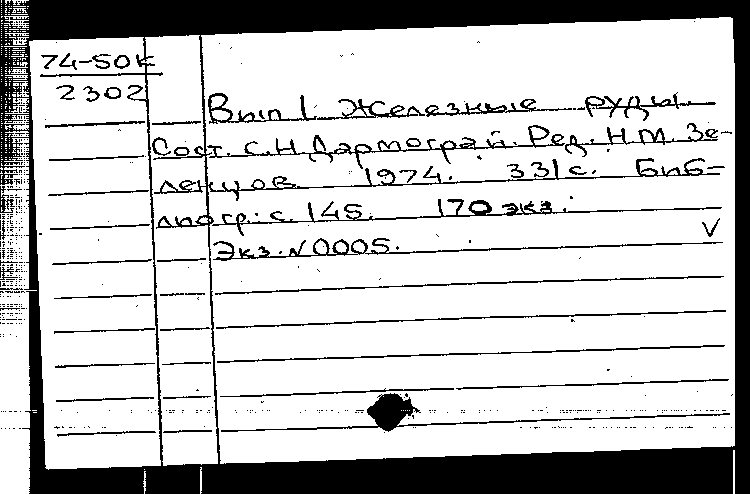 74-50к
2302
Вып 1. Железные руды.
Сост. С.Н. Дармограй. Ред. Н.М. Зе-
ленцов. 1974. 331 с. Биб-
лиогр: с. 145. 170 экз.
Экз. N 0005.
V